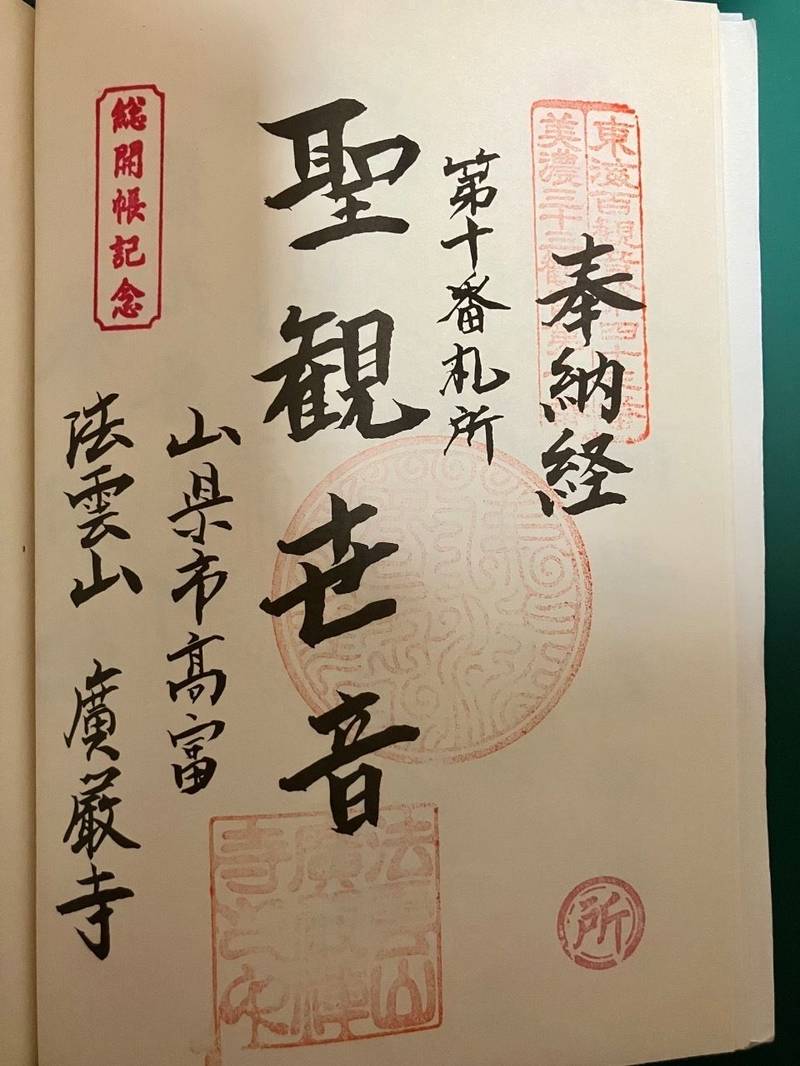 東海百観音第四十三番
美濃三十三観
奉納経
第十番札所
聖観世音
山県市高富
法雲山 廣厳寺
総開帳記念
法雲山
廣嚴禅
寺之印
所